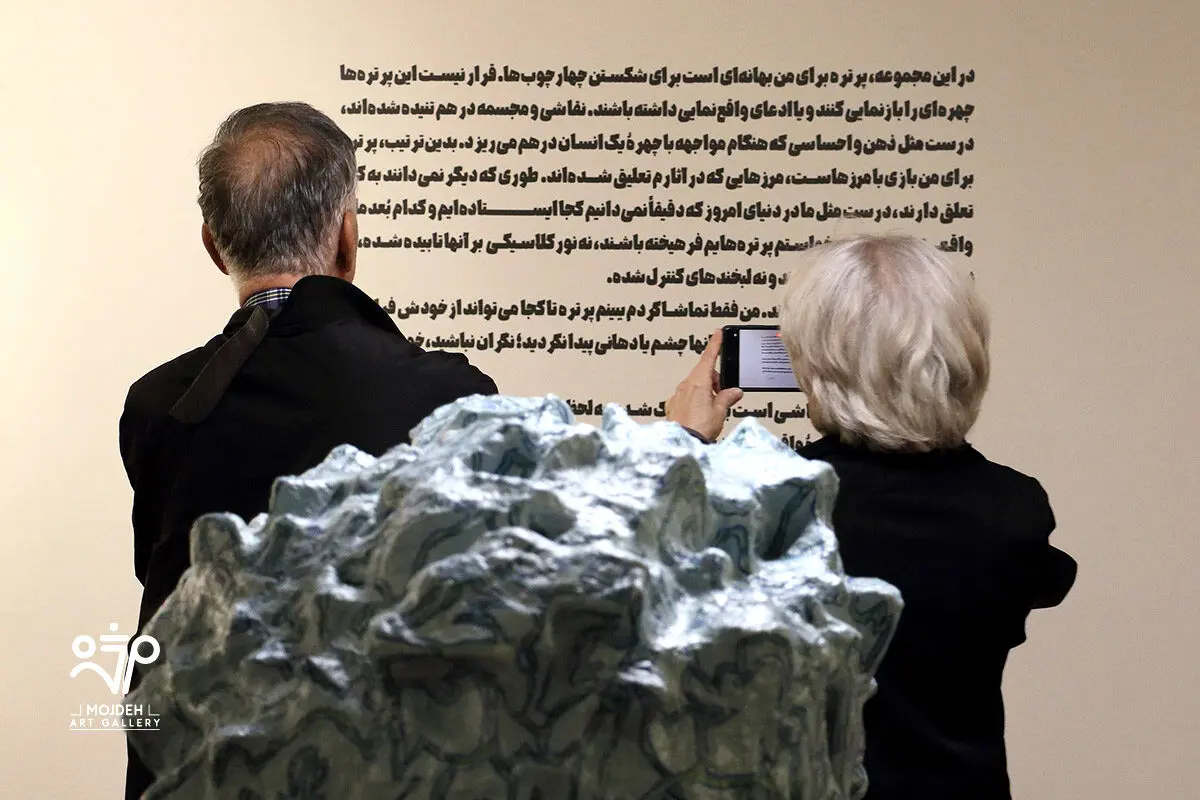 در این مجموعه، پرتره برای من بهانه‌ای است برای شکستن چهارچوب‌ها. قرار نیست این پرتره‌ها
چهره‌ای را بازنمایی کنند و یا ادعای واقع‌نمایی داشته باشند. نقاشی و مجسمه در هم تنیده شده‌اند،
درست مثل ذهن و احساسی که هنگام مواجهه با چهرهٔ یک انسان در هم می‌ریزد. بدین ترتیب،
برای من بازی با مرزهاست، مرزهایی که در آثارم تعلیق شده‌اند. طوری که دیگر نمی‌دانند به
تعلق دارند، درست مثل ما در دنیای امروز که دقیقاً نمی‌دانیم کجا ایستاده‌ایم و کدام بُعد
پرتره‌هایم فرهیخته باشند، نه نور کلاسیکی بر آنها تابیده شده،
و نه لبخندهای کنترل شده.
من فقط تماشاگردم ببینم پرتره تا کجا می‌تواند از خودش
چشم یا دهانی پیدا نکردید؛ نگران نباشید،
است
MOJDEH
ART GALLERY